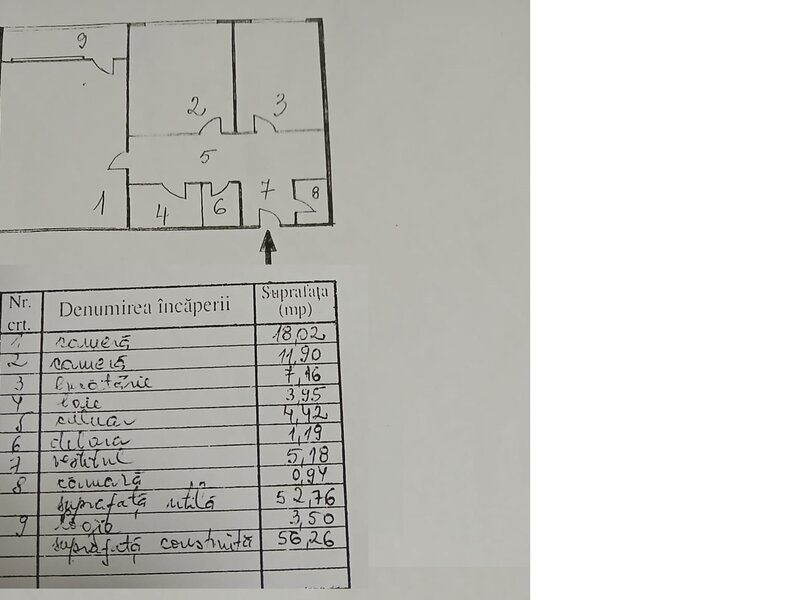 9
2
3
5
1
4
6
7
8
Nr. crt. Denumirea încăperii Suprafața (mp)
1 cameră 18,02
2 cameră 11,90
3 bucătărie 7,16
4 baie 3,95
5 culoar 4,42
6 debara 1,19
7 vestibul 5,18
8 cămară 0,94
suprafață utilă 52,76
9 logie 3,50
suprafață construită 56,26